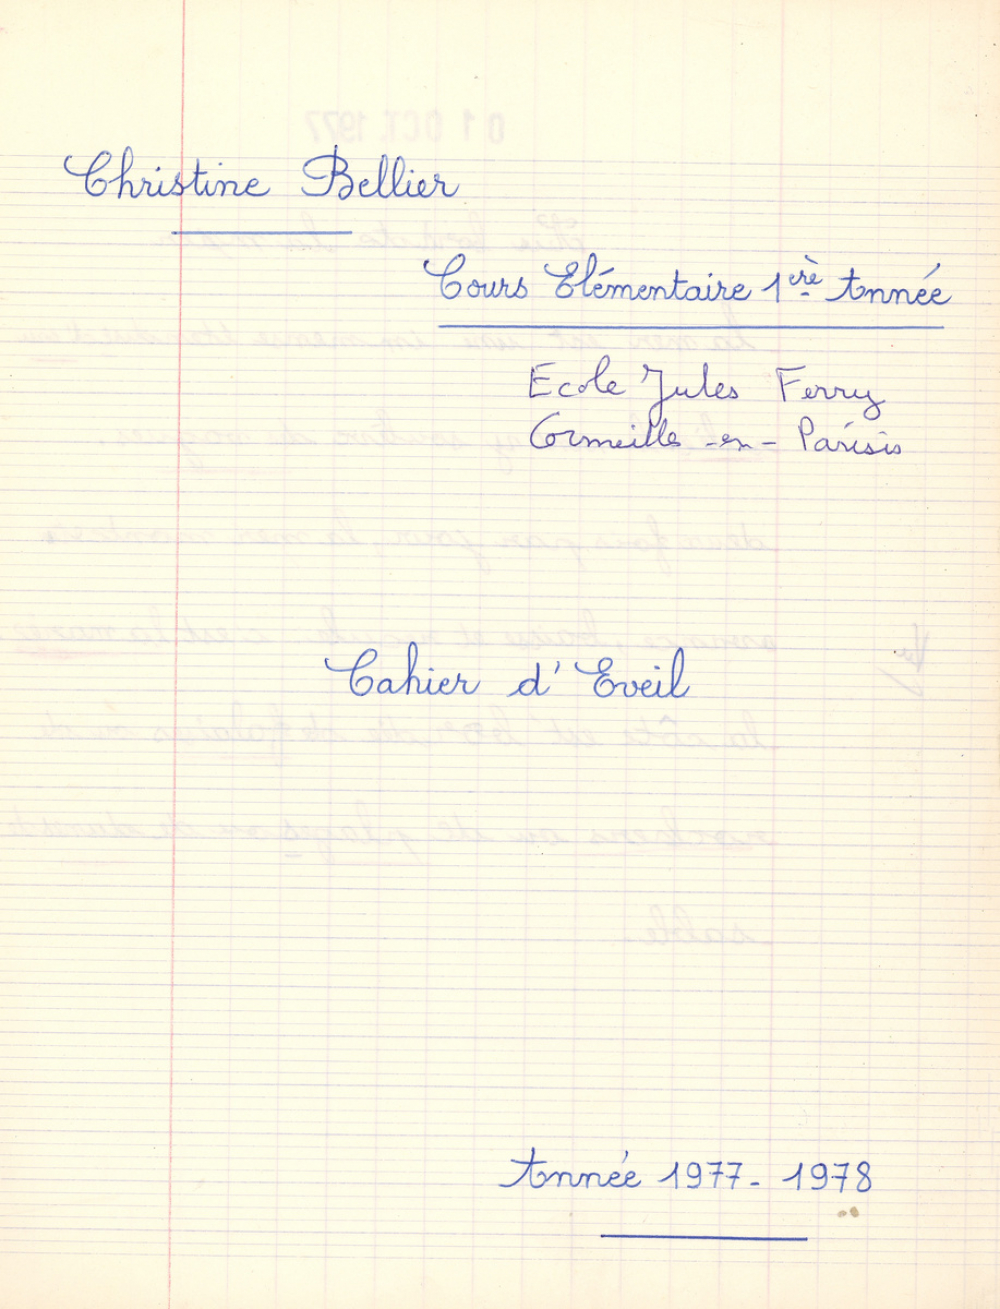 Christine Bellier
Cours Elémentaire 1ère Année
Ecole Jules Ferry
Cormeilles-en-Parisis
Cahier d'Eveil
Année 1977-1978